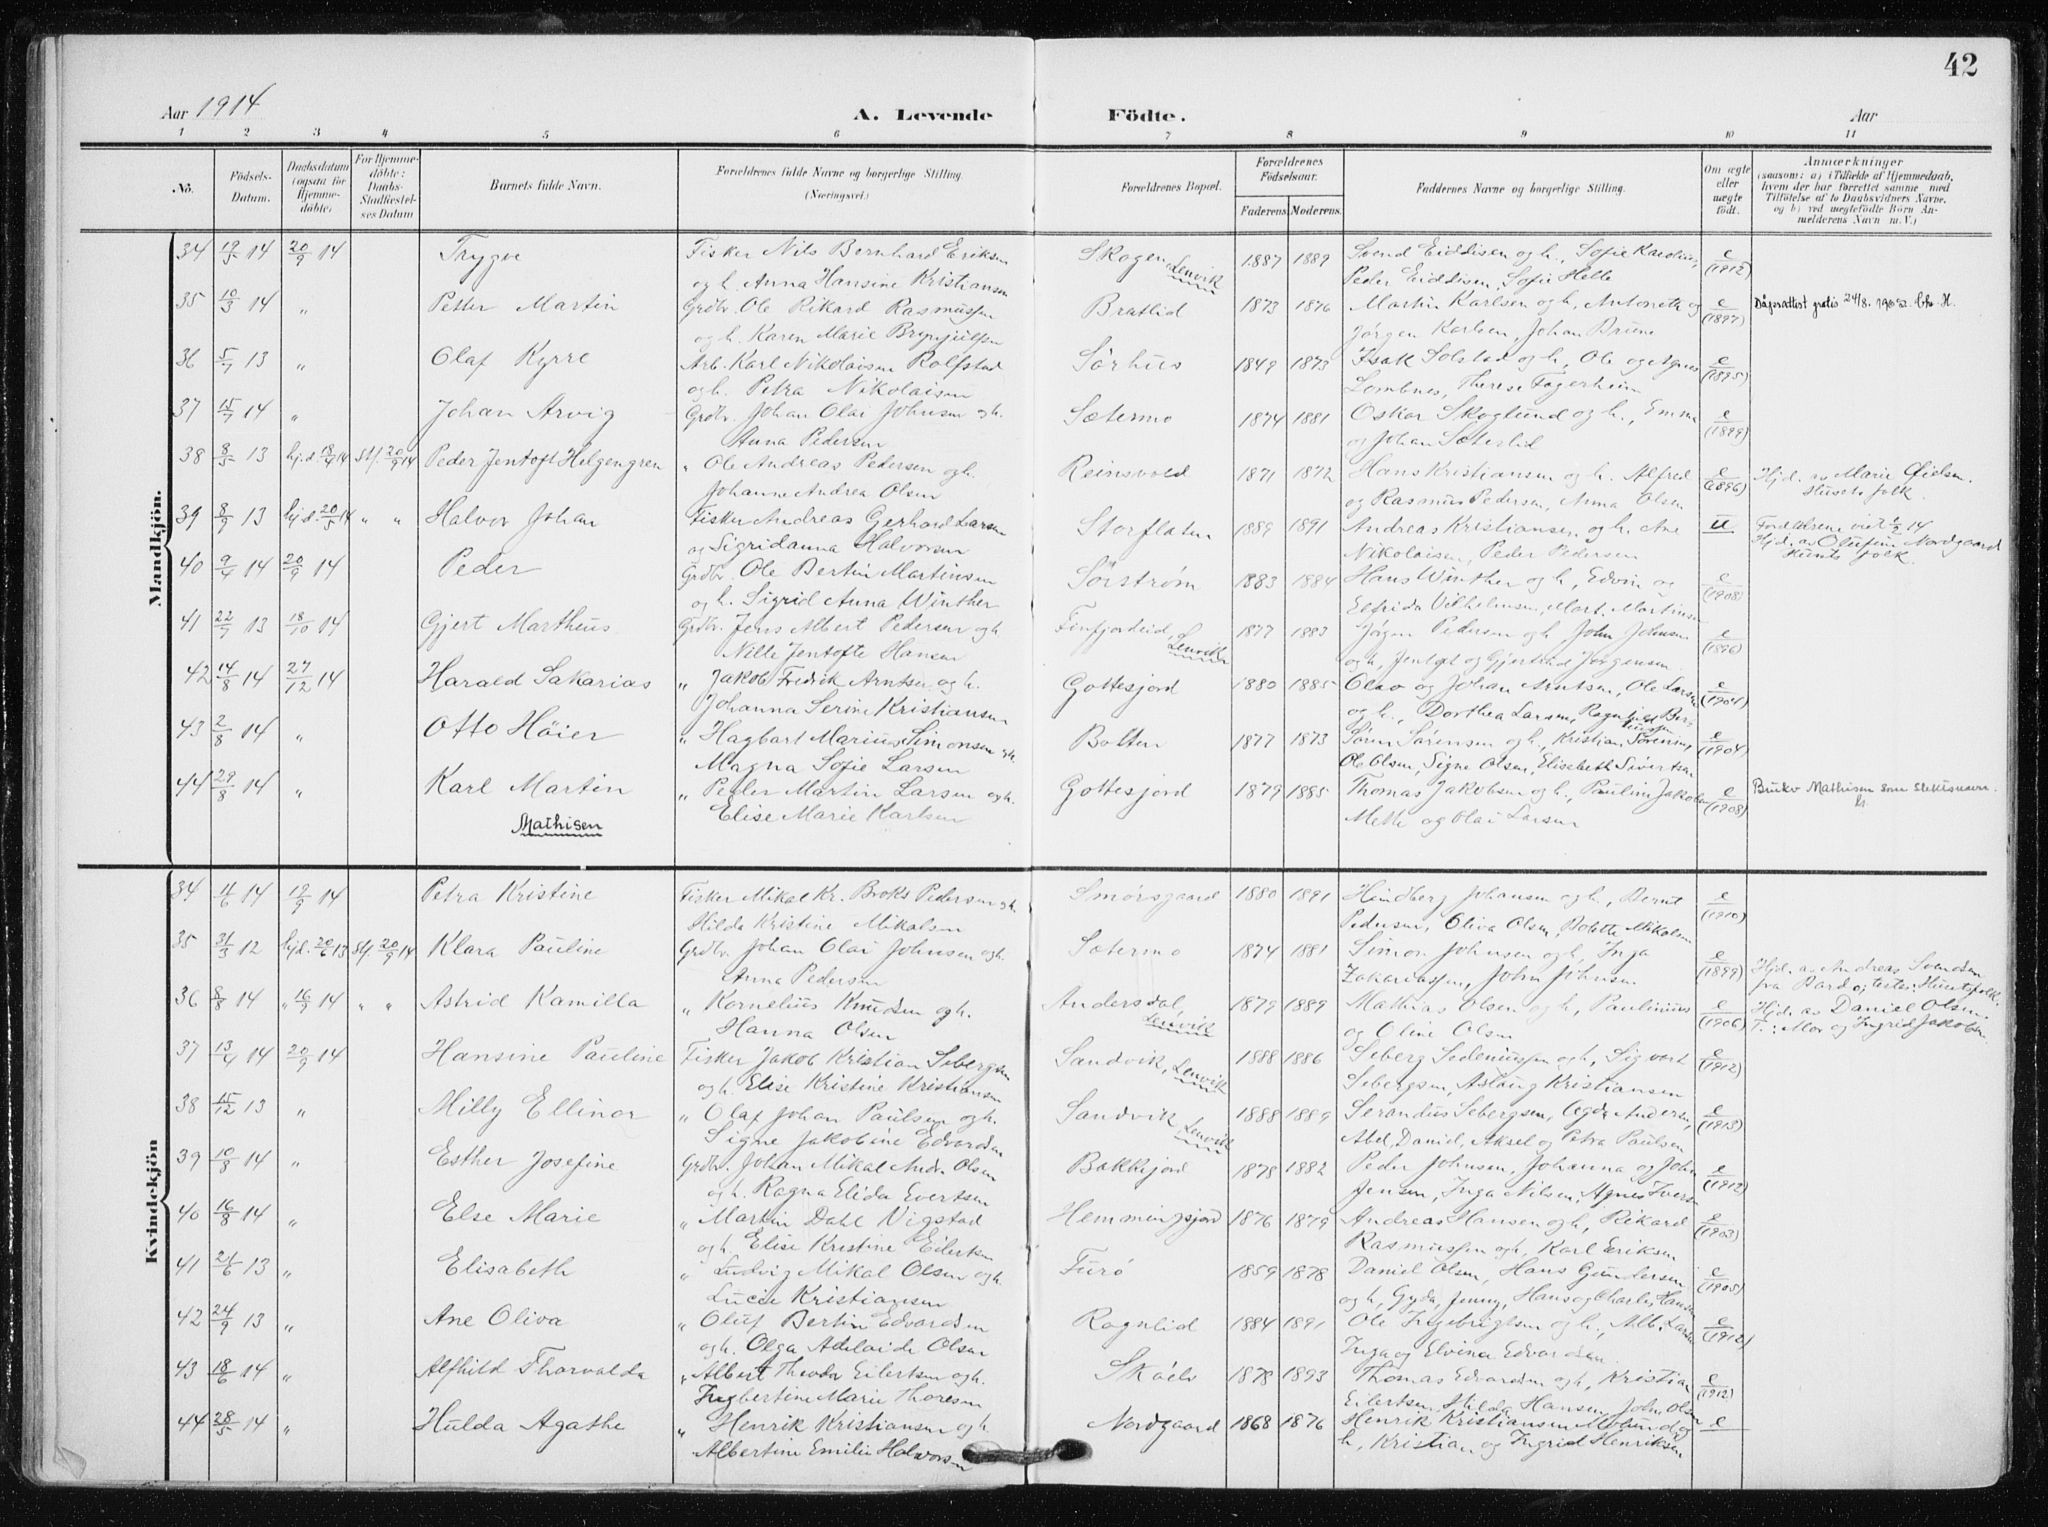 42
Aar 1914 A. Levende Födte. Aar
1 2 3 4 5 6 7 8 9 10 11
No. Födsels-Datum. Daabsdatum (ogsaa for Hjemme-döbte) For Hjemme-döbte: Daabs-Stadfæstel-ses Datum Barnets fulde Navn. Forældrenes fulde Navne og borgerlige Stilling. (Næringsvei.) Forældrenes Bopæl. Forældrenes Födselsaar. Faderens Moderens. Faddernes Navne og borgerlige Stilling. Om ægte eller uægte födt. Anmærkninger (saasom: a) i Tilfælde af Hjemmedaab, hvem der har forrettet samme med Tilföielse af to Daabsvidners Navne, og b) ved uægtefödte Börn An-melderens Navn m. V.)
Mandkjön.
34 19/5 14 20/9 14 Trygve Fisker Nils Bernhard Eriksen Skogen, Lenvik 1887 1889 Svend Eiddisen og h., Sofie Karolius, e
og h. Anna Hansine Kristiansen Peder Eiddisen, Sofie Helle (1912)
35 10/3 14 " Petter Martin Grdbr. Ole Rikard Rasmussen Bratlid 1873 1876 Martin Karlsen og h. Antonette og e Dåpsattest gratis 24/8.
og h. Karen Marie Brynjulfsen Jørgen Karlsen, Johan Bruns (1897)
36 5/7 13 " Olaf Kyrre Arb. Karl Nikolaisen Rolfstad Sørhus 1849 1873 Isak Solstad og h., Ole og Agnes e
og h. Petra Nikolaisen Lombnes, Therese Fagerheim (1895)
37 15/7 14 " Johan Arvig Grdbr. Johan Olai Johnsen og h. Sætermo 1874 1881 Oskar Skoglund og h., Emma e
Anna Pedersen og Johan Sæterlid (1899)
38 8/5 13 hj.d. 18/9 14 stf. 20/9 14 Peder Jentoft Helgengren " Ole Andreas Pedersen og h. Reinsvold 1871 1872 Hans Kristiansen og h. Alfred e Hjd. av Marie
Johanne Andrea Olsen og Rasmus Pedersen, Anna Olsen (1896) Husets folk.
39 8/9 13 hj.d. 20/5 14 " " Halvor Johan Fisker Andreas Gerhard Larsen Storflaten 1889 1891 Andreas Kristiansen og h. Ane u Forældrene viet 14
og Sigridanna Halvorsen Nikolaisen, Peder Pedersen Hjd. av Nordgaard
40 9/4 14 20/9 14 Peder Grdbr. Ole Bertin Martinsen Sørstrøm 1883 1884 Hans Winther og h., Edvin og e folk.
og h. Sigrid Anna Winther Elfrida Vilhelmsen, Mart. Martinsen (1908)
41 22/7 13 18/10 14 Gjert Martheus Grdbr. Jens Albert Pedersen og h. Finfjordeid, Lenvik 1877 1883 Jørgen Pedersen og h. John Johnsen e
Nille Jentofte Hansen og h, Jentof og Jørgensen (1896)
42 14/8 14 27/12 14 Harald Sakarias " Jakob Fredrik Arntsen og h. Gottesjord 1880 1885 Olav og Johan Arntsen, Ole Larsen e
Johanna Serine Kristiansen og h., Dorthea Larsen, Ragnhild (1904)
43 2/8 14 " Otto Höier " Hagbart Marius Simonsen og h. Bolten 1877 1873 Søren Sørensen og h., Kristian Sørensen, e
Magna Sofie Larsen Ole Olsen, Signe Olsen, Elisabeth Sivertsen (1904)
44 29/8 14 " Karl Martin " Peder Martin Larsen og h. Gottesjord 1879 1885 Thomas Jakobsen og h., Pauline Jakobsen e Bruker Mathisen som slektsnavn.
Mathisen Elise Marie Karlsen Mette og Olai Larsen (1908)
Kvindekjön
34 11/6 14 19/9 14 Petra Kristine Fisker Mikal Kr. Broks Pedersen og h. Smörsgaard 1880 1891 Hindberg Johansen og h., Bernt e
Hilda Kristine Mikalsen Pedersen, Oliva Olsen, Bolette Mikalsen (1910)
35 31/3 12 hjd. 20/6 13 stf. 20/9 14 Klara Pauline Grdbr. Johan Olai Johnsen og h. Sætermo 1874 1881 Simon Johnsen og h, Inga e Hjd. av Andreas Svendsen
Anna Pedersen Zakariassen, John Johnsen (1899) fra Bardo
36 8/8 14 " 16/9 14 " " Astrid Kamilla " Kornelius Knudsen og h. Andersdal, Lenvik 1879 1889 Mathias Olsen og h, Paulinius e Hjd. av Daniel Olsen.
Hanna Olsen og Oline Olsen (1906) T.: Mor og Ingrid Jakobsen.
37 13/4 14 20/9 14 Hansine Pauline Fisker Jakob Kristian Sebergsen Sandvik, Lenvik 1888 1886 Seberg Sedeniussen og h, Sigvart e
og h. Elise Kristine Kristiansen Sebergsen, Aslaug Kristiansen (1912)
38 15/12 13 " Milly Ellinor " Olaf Johan Paulsen og h. Sandvik, Lenvik 1888 1889 Serandus Sebergsen, Agda Andersen, e
Signe Jakobine Edvardsen Abel, Daniel, Aksel og Petra Paulsen (1913)
39 10/8 14 " Esther Josefine Grdbr. Johan Mikal Andr. Olsen Bakkejord 1878 1882 Peder Johnsen, Johanna og John e
og h. Ragna Elida Evertsen Jensen, Inga Nilsen, Agnes Ivers (1912)
40 16/8 14 " Else Marie " Martin Dahl Vigstad Hemmingsjord 1876 1879 Andreas Hansen og h, Rikard e
og h. Elise Kristine Eilertsen Rasmussen og h, Karl Eriksen (1903)
41 21/6 13 " Elisabeth " Ludvig Mikal Olsen og h. Furö 1859 1878 Daniel Olsen, Hans Gundersen e
Lucie Kristiansen og h, Gyda, Jenny, Hans og Charles Hansen (1905)
42 24/9 13 " Ane Oliva " Oluf Bertin Edvardsen Rognlid 1884 1891 Ole Ingebrigtsen og h., Alb. Larsen e
og h. Olga Adelaide Olsen Inga og Elvina Edvardsen. (1912)
43 18/6 14 " Alfhild Thorvalda " Albert Theodor Eilertsen og h. Sköelv 1878 1893 Thomas Edvardsen og h, Kristian e
Ingbertine Marie Thoresen Eilertsen, Hilda Hansen, John Olsen (1912)
44 28/5 14 " Hulda Agathe " Henrik Kristiansen og h Nordgaard 1868 1876 Henrik Kristiansen Molund og e
Albertine Emilie Halvorsen h, Kristian og Ingrid Henriksen